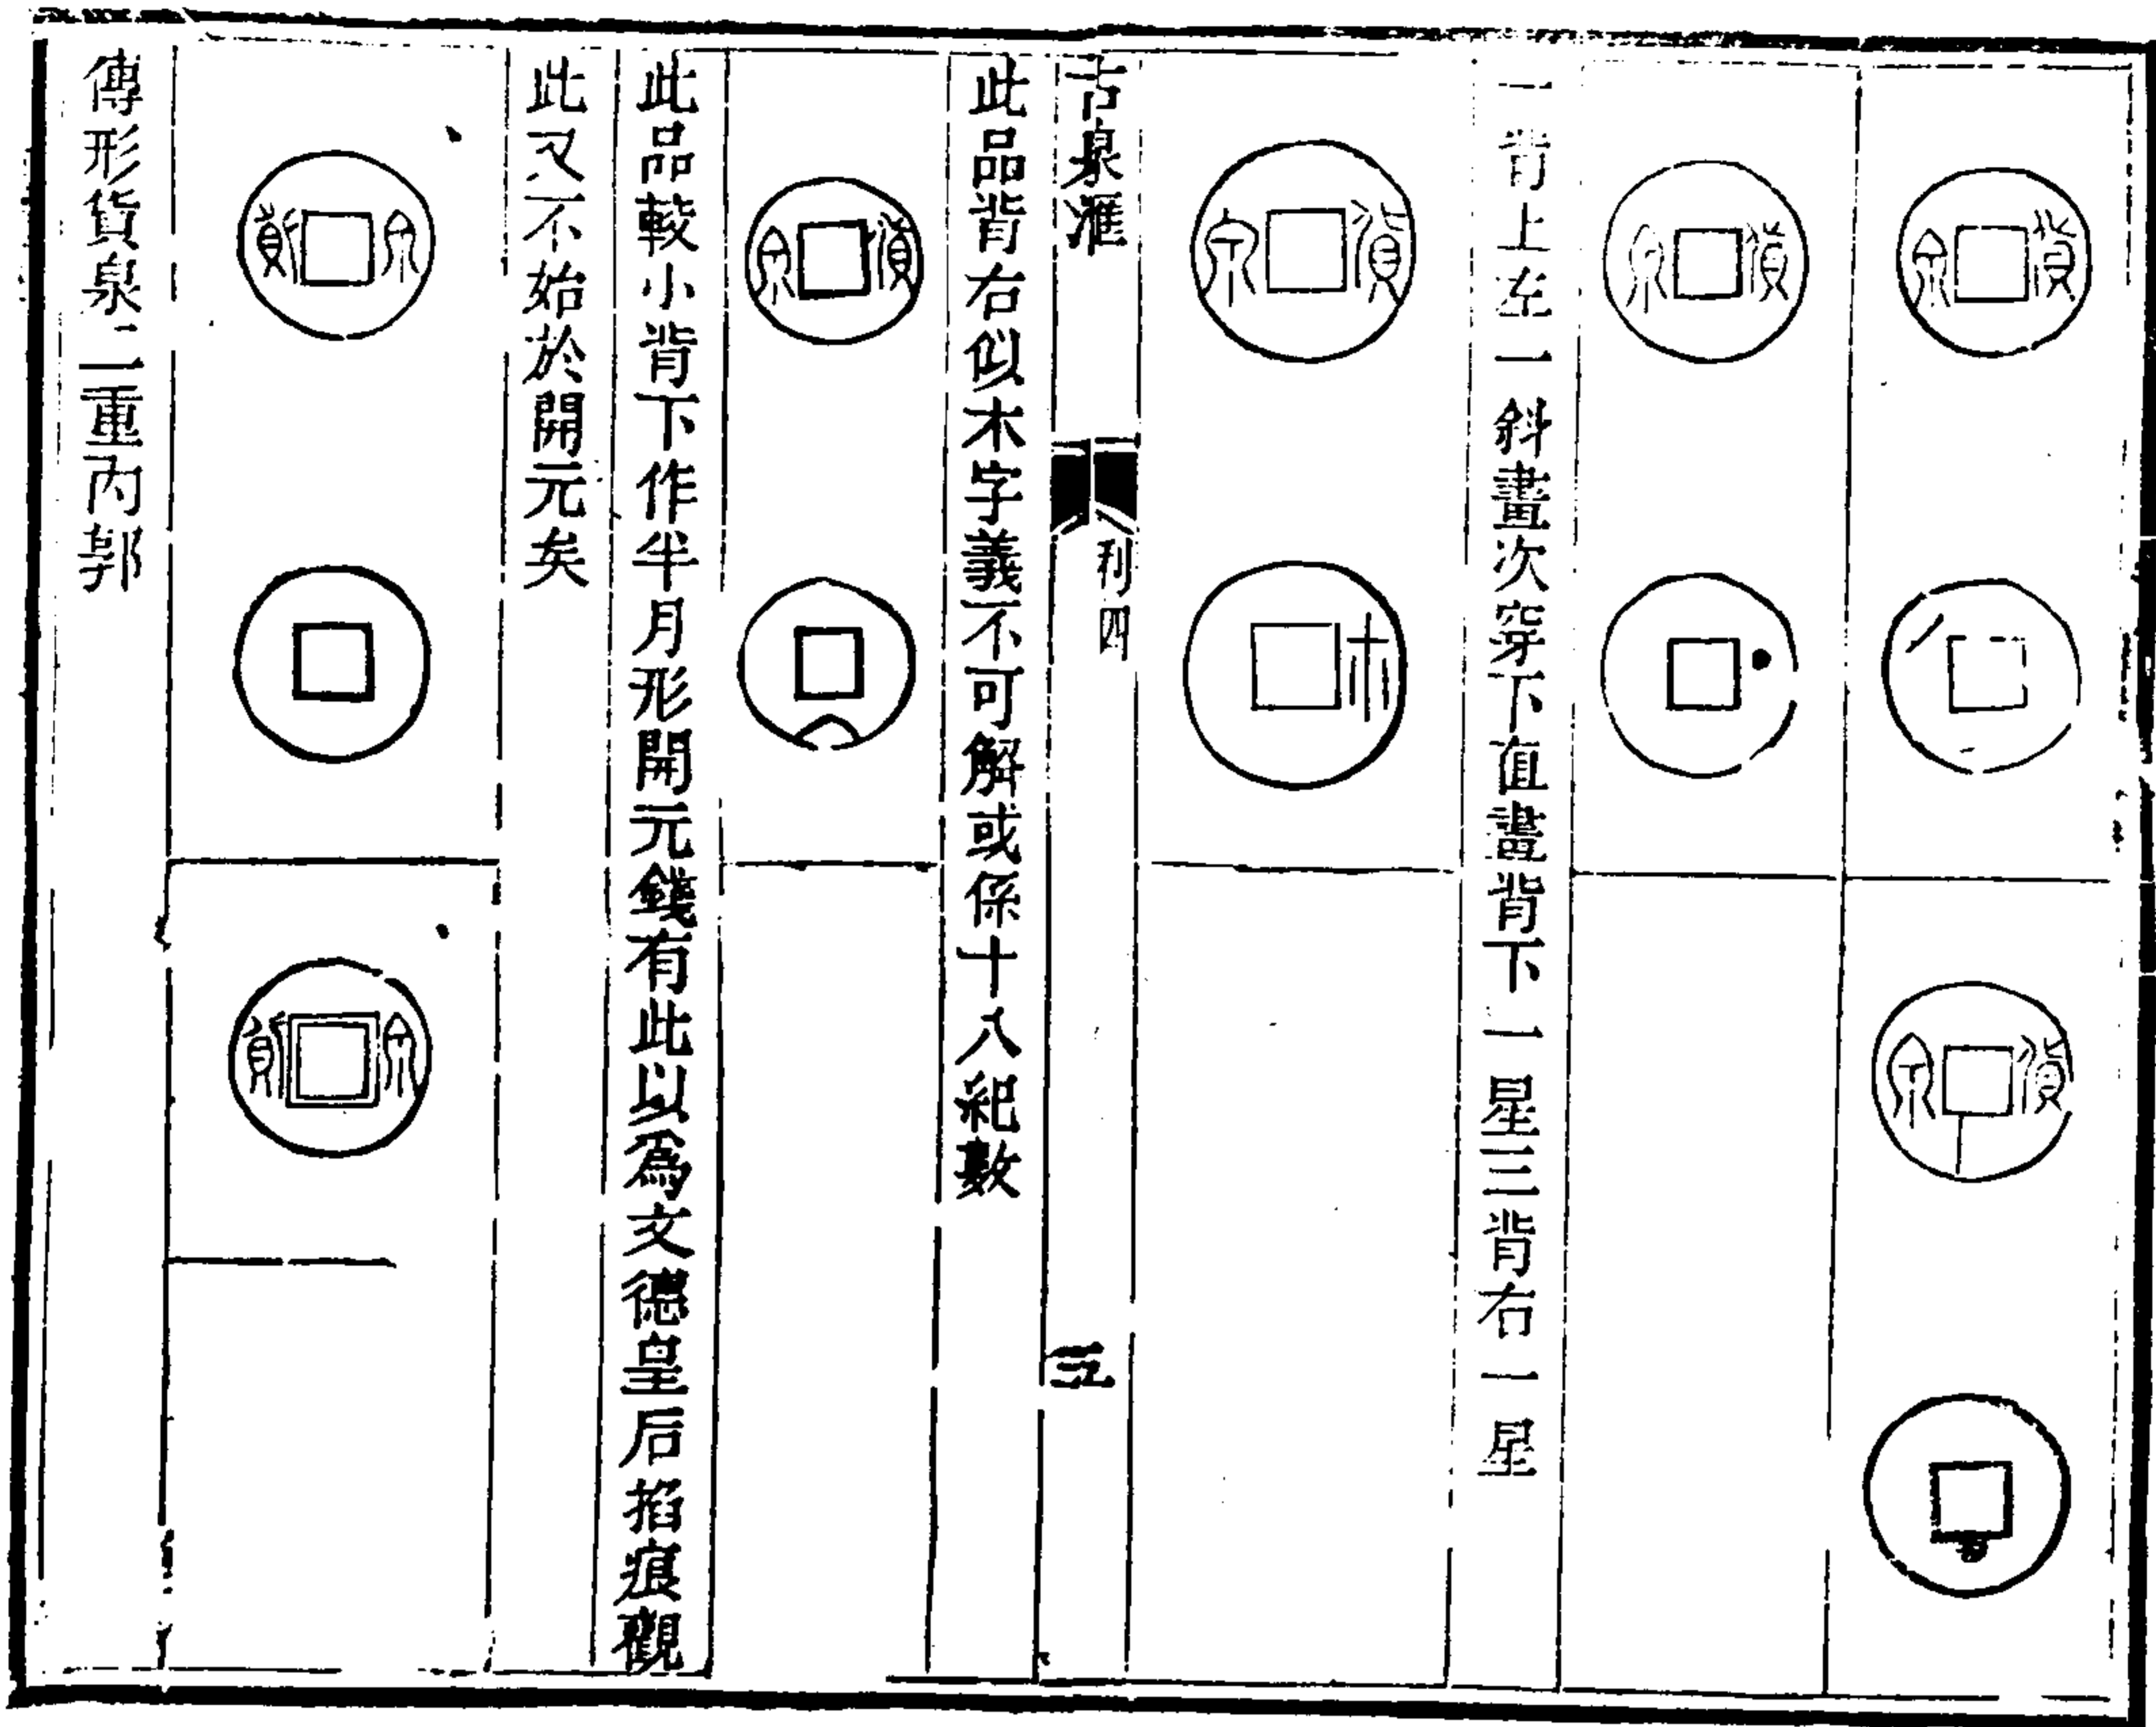 貨泉
貨泉
貨泉
一背上左一斜畫次穿下直畫背下一星三背右一星
貨泉
古泉滙
利四
此品背右似木字義不可解或係十八紀數
貨泉
此品較小背下作半月形開元錢有此以爲文德皇后掐痕觀
此又不始於開元矣
泉貨
泉貨
傳形貨泉二重內郭